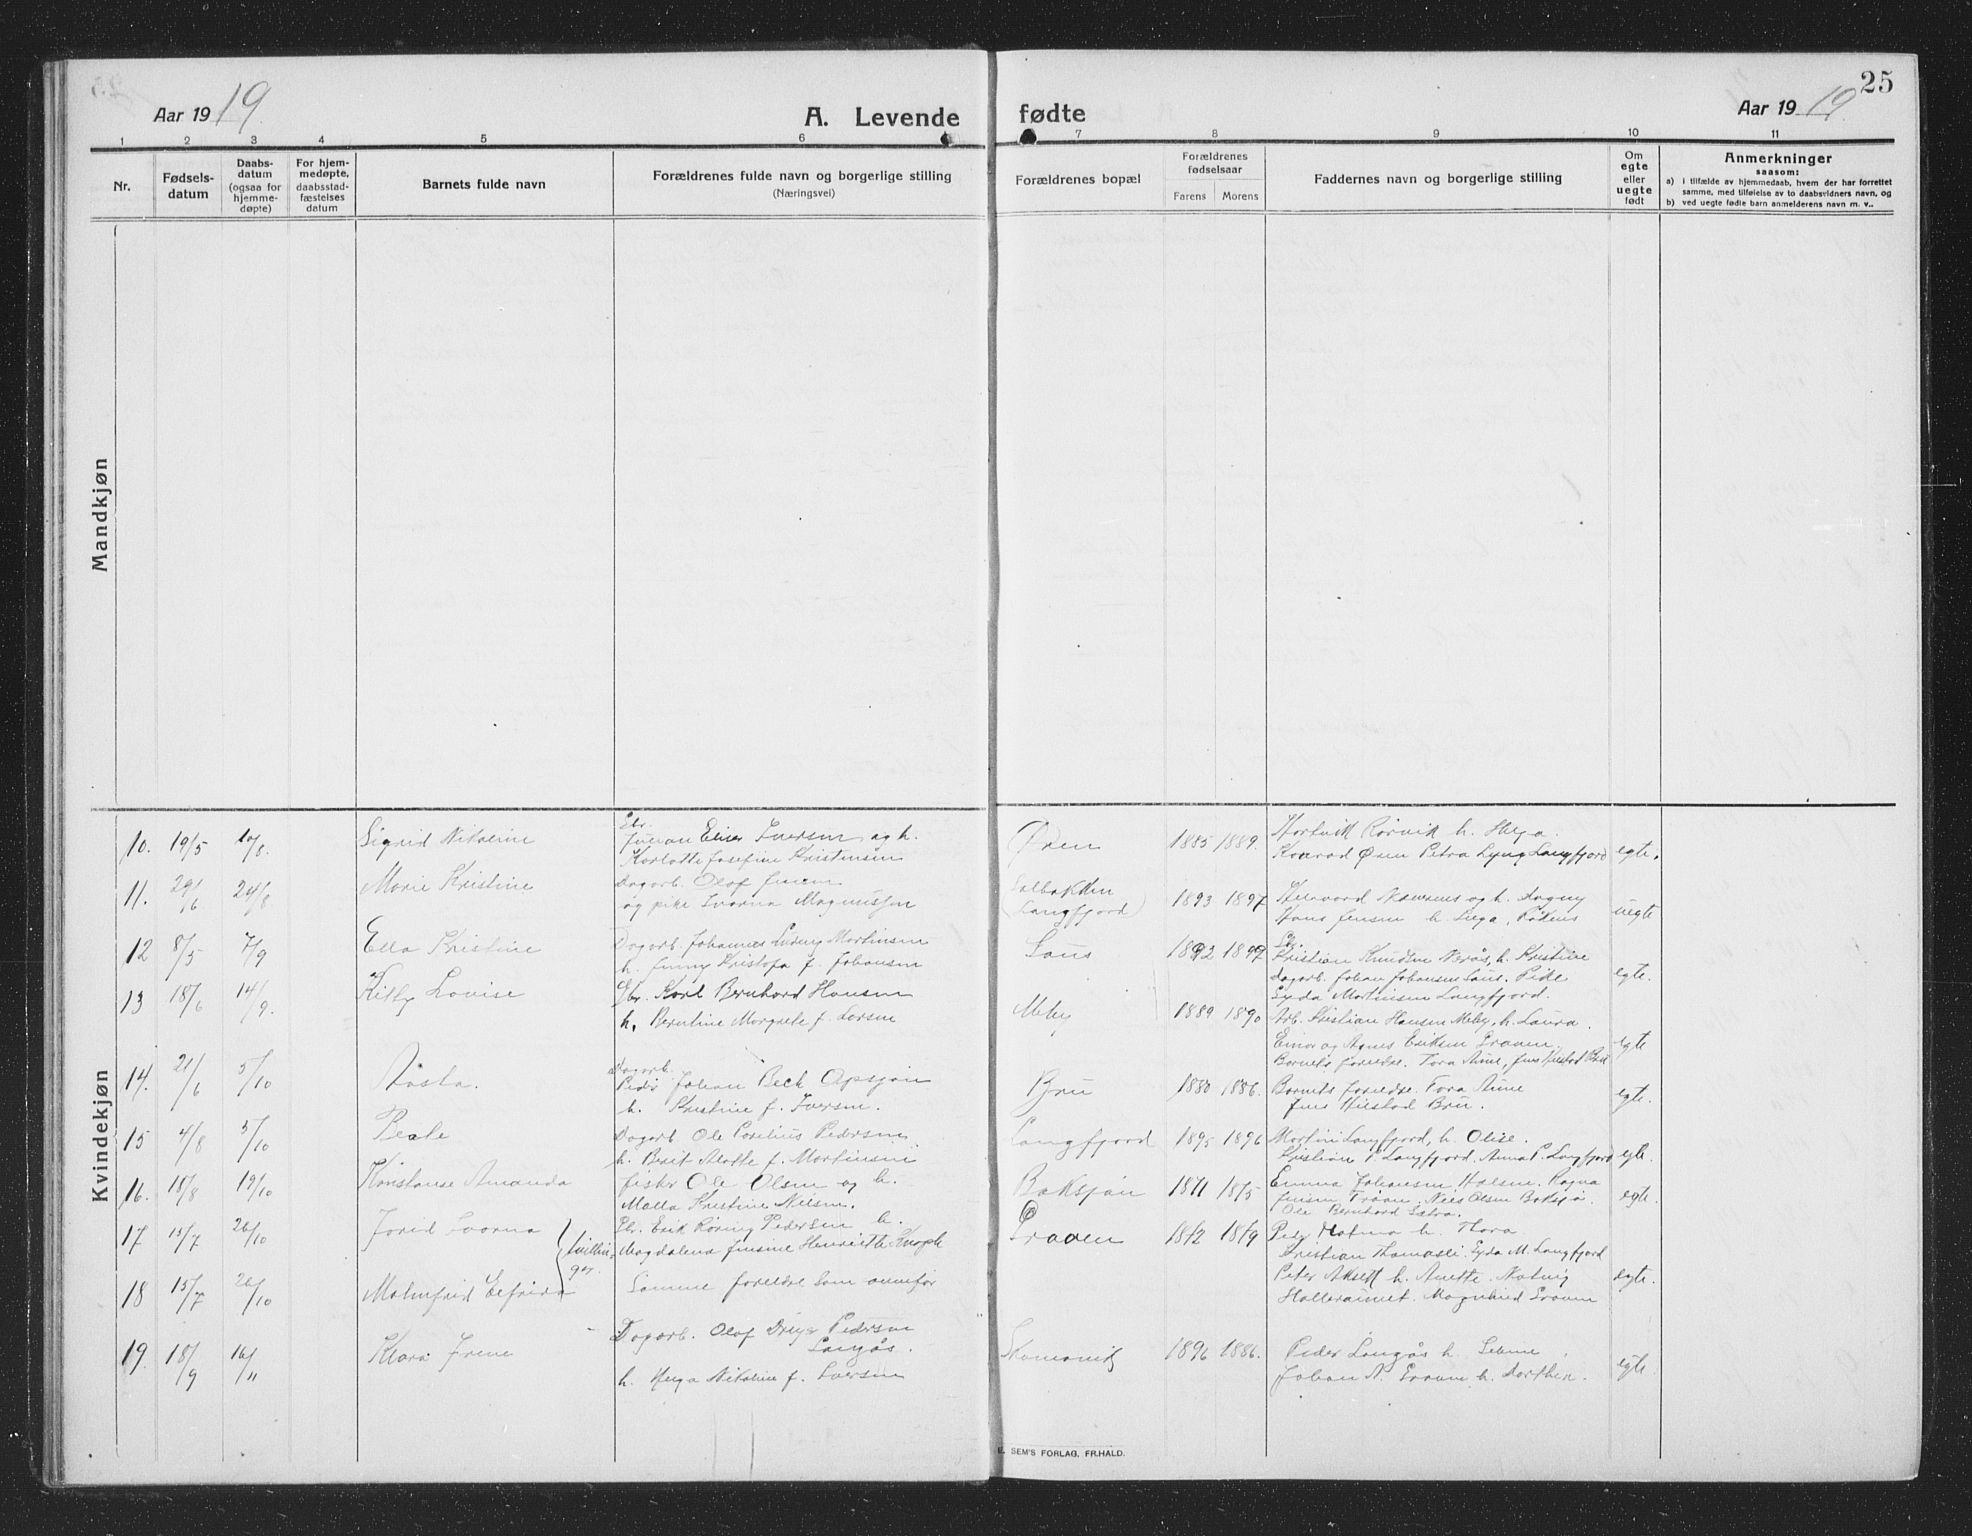 Aar 1919.
A. Levende
fødte
Aar 1919.
25
1 2 3 4 5 6 7 8 9 10 11
Nr.
Fødsels-
datum
Daabs-
datum
(ogsaa for
hjemme-
døpte)
For hjem-
medøpte,
daabsstad-
fæstelses
datum
Barnets fulde navn
Forældrenes fulde navn og borgerlige stilling
(Næringsvei)
Forældrenes bopæl
Forældrenes
fødselsaar
Farens Morens
Faddernes navn og borgerlige stilling
Om
egte
eller
uegte
født
Anmerkninger
saasom:
a) i tilfælde av hjemmedaab, hvem der har forrettet
samme, med tilføielse av to daabsvidners navn, og
b) ved uegte fødte barn anmelderens navn m. v..
Mandkjøn
Kvindekjøn
10. 19/5 10/8. Sigrid Nikoline
Elias Iversen og h.
Karlotte Josefine Kristensen
Øren 1885 1889.
Rørvik h. Helga.
Konrad Øren Petra Lyng Langfjord egte.
11. 29/6 24/8 Marie Kristine
Dagarb. Olaf Jensen
og pike Svanna Magnussen
Solbakken
(Langfjord) 1893 1897
og h. Dagny
Hans Jensen h. uegte
12 8/5 7/9 Ella Kristine
Dagarb. Johannes Ludvig Martinsen
h. Jenny Kristofa f. Johansen
Saus
Kristian Knudsen h. Kristine
Dagarb. Johan Johansen Saus. Pike
Lyda Martinsen Langfjord. egte.
13 18/6 14/9. Kitty Lovise
Gbr. Karl Bernhard Hansen
h. Berntine Margrete f. Larsen
Meby 1889 1890
Arb. Kristian Hansen Meby, h. Laura.
Einar og Agnes Eriksen
Barnets foreldre. Tora Aune, Jens Hustad Bru egte
14. 21/6 5/10 Aasta.
Dagarb.
Peder Johan Beck Opsjøn
h. Kristine f. Iversen.
Bru 1880 1886.
Barnets foreldre. Tora Aune
Jens Hustad Bru. egte.
15 4/8 5/10 Beate
Dagarb. Ole Pedersen
h. Berit Alette f. Martinsen
Langfjord 1895 1896
Martin Langfjord, h. Olise.
Kristian P. Langfjord. Anna P. Langfjord egte.
16. 18/8 19/10 Konstanse Amanda
fisker Ole Olsen og h.
Malla Kristine Nilsen.
Boksjøn 1871 1875
Emma Johansen Ragna
Jensen Nils Olsen Boksjø.
Ole Bernhard egte.
17 15/7 26/10 Jorid
Erik Røring Pedersen h.
Magdalena Jensine Henriette Knoph
tvillin-
ger.
1872 1879
h. Thora
Kristian Lyda M. Langfjord
18 15/7 26/10 Malmfrid Elfrida
Samme foreldre som ovenfor
Peter h. Anette.
egte.
19. 18/9 16/11 Klara Irene
Dagarb. Olaf Pedersen
Langås.
h. Helga Nikoline f. Iversen
1896 1886.
Peder Langås h.
Johan N. h. egte.
E. SEM'S FORLAG, FR.HALD.